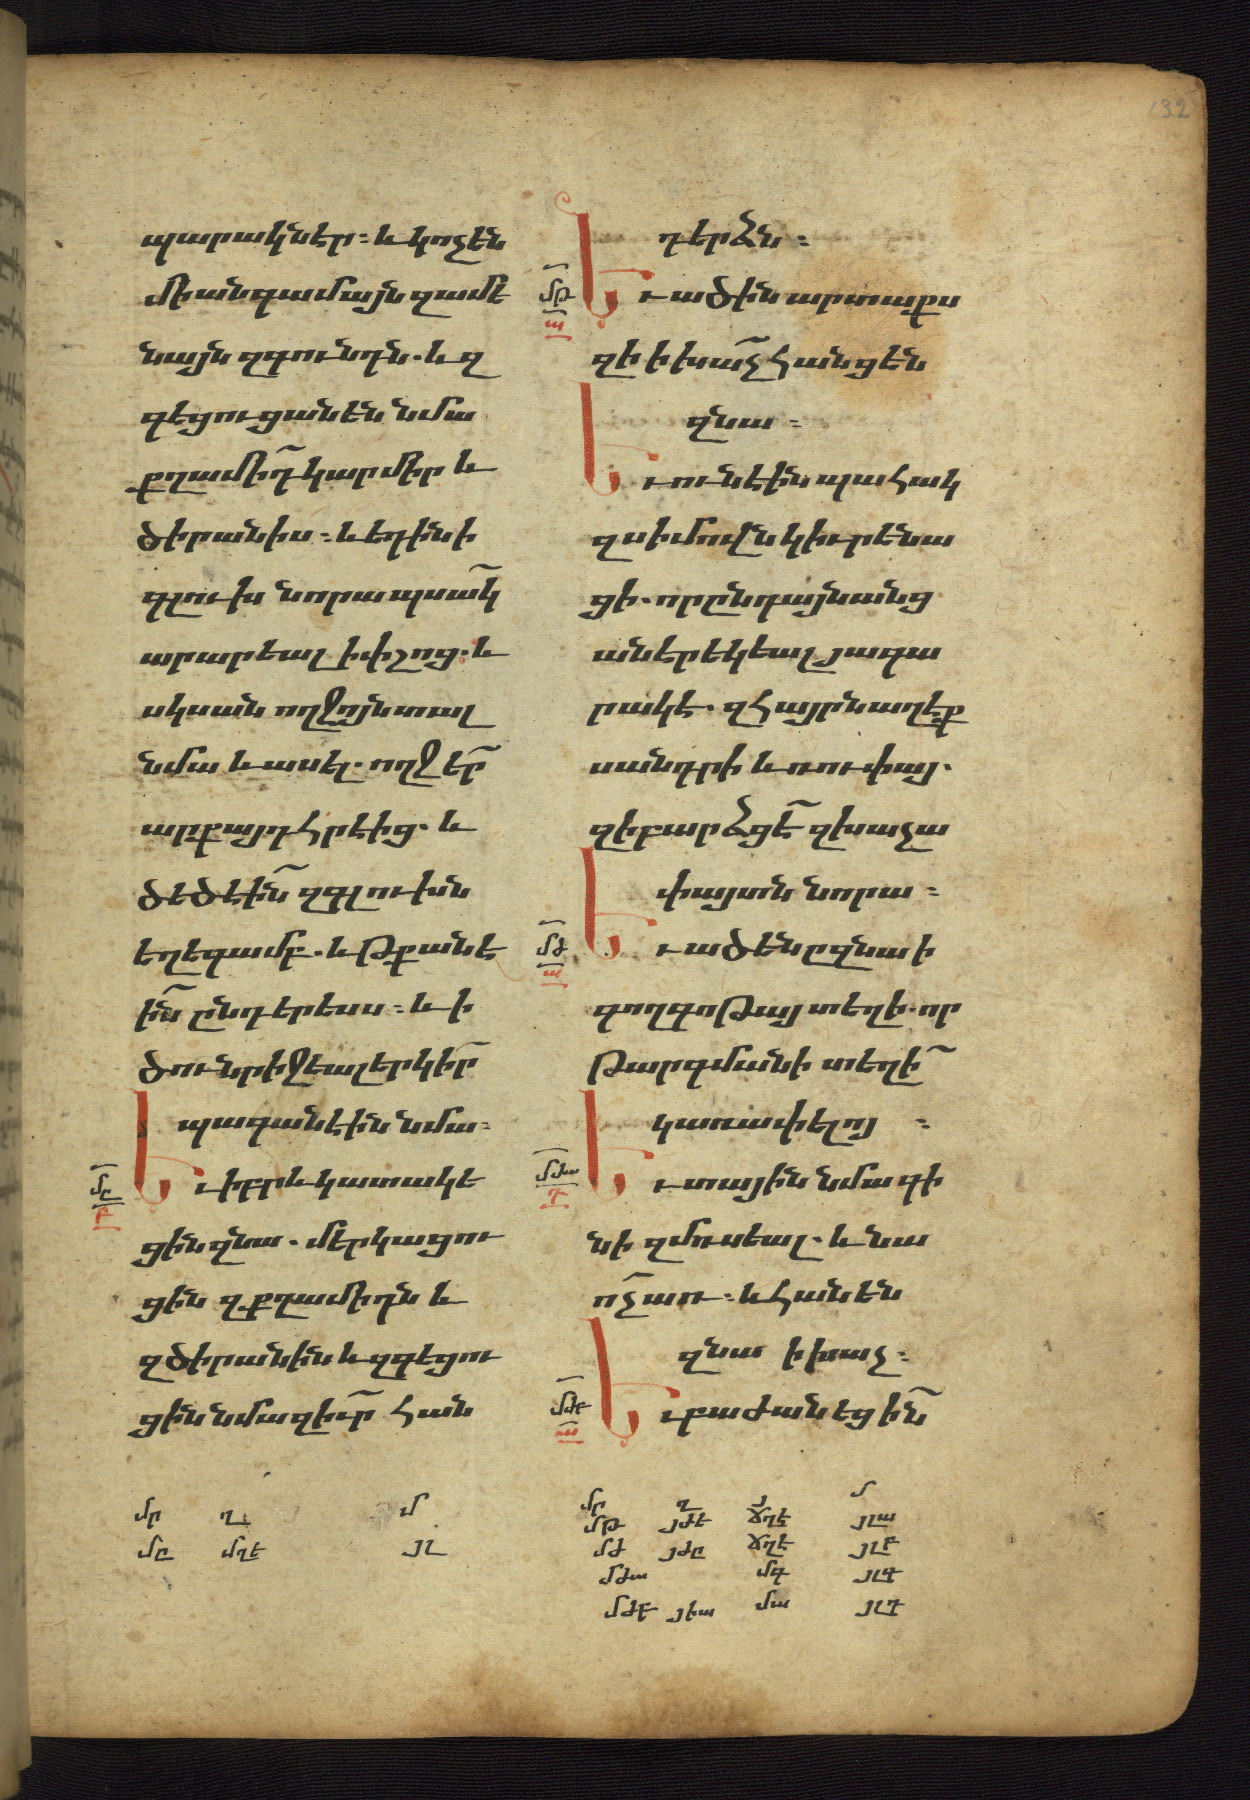 132
պարակներ։ և կոչեն
միանգամայն զամե
նայն զգունդն. և զ
գեցուցանեն նմա
քղամիդ կարմիր և
ծիրանիս։ և եդին ի
գլուխ նորա պսակ
արարեալ ի փշոց. և
սկսան ողջոյն տալ
նմա և ասել. ողջ եր
արքայդ հրէից. և
ծեծէին զգլուխն
եղեգամբ. և թքանէ
ին ընդ երեսս։ և ի
ծունր իջեալ երկիր
պագանէին նմա։
Եւ իբրև կատակե
ցին զնա. մերկացու
ցին զքղամիդն և
զծիրանին և զգեցու
ցին նմա զիւր հան
դերձն։
Եւ ածին արտաքս
զի ի խաչ հանցեն
զնա։
Եւ ունէին պահակ
զսիմովն կիւրենա
ցի. որ ընդ այն անց
աներ եկեալ յագա
րակէ. զհայրն աղեք
սանդրի և ռուփայ.
զի բարձցէ զխաչա
փայտն նորա։
Եւ ածեն զնա ի
գողգոթայ տեղի. որ
թարգմանի տեղի
կառափելոյ։
Եւ տային նմա գի
նի զմուսեալ. և նա
ոչ առ։ և հանեն
զնա ի խաչ։
Եւ բաժանեցին
մը
բ
մթ
ա
մժ
ա
մժա
դ
մժբ
ա
մը մղե յլ
մթ յժե յլա
մժ յժը յլբ
մժա մգ յլգ
մժբ յիա մա յլդ